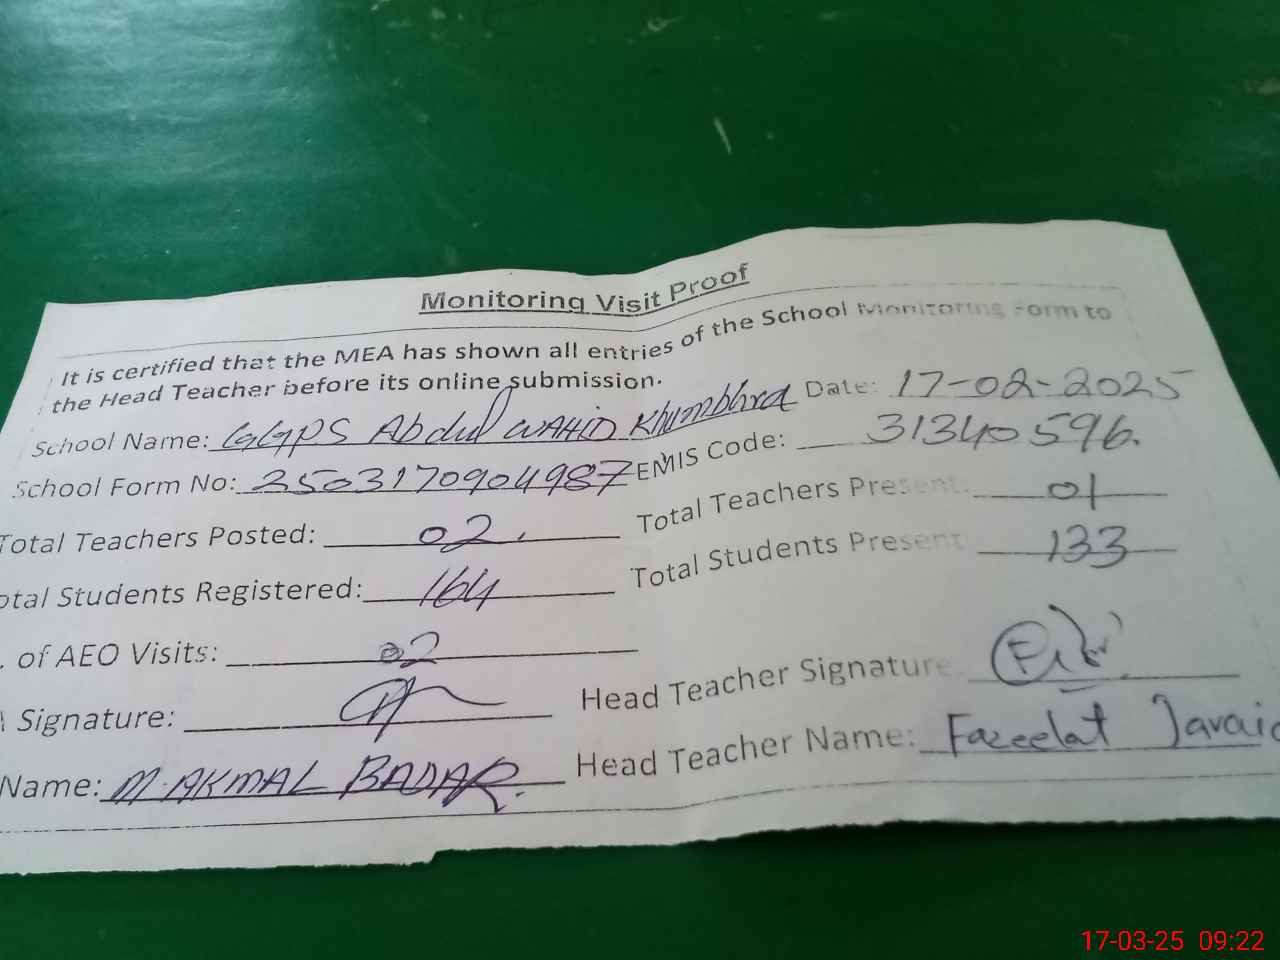 Monitoring Visit Proof
It is certified that the MEA has shown all entries of the School Monitoring Form to
the Head Teacher before its online submission.
School Name: GGPS Abdul WAHID Khumbhra Date: 17-02-2025
School Form No: 3503170904987 EMIS Code: 31340596.
Total Teachers Posted: 02. Total Teachers Present: 01
otal Students Registered: 164 Total Students Present: 133
. of AEO Visits: 02
Signature: Head Teacher Signature:
Name: M. AKMAL BADAR. Head Teacher Name: Fazeelat Javaid
17-03-25 09:22